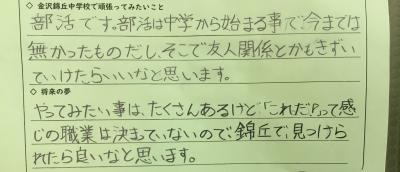 ◇ 金沢錦丘中学校で頑張ってみたいこと
部活です。部活は中学から始まる事で、今までは
無かったものだし、そこで友人関係とかもきずい
ていけたらいいなと思います。
◇ 将来の夢
やってみたい事は、たくさんあるけど「これだ!」って感
じの職業は決まっていないので錦丘で、見つけら
れたら良いなと思います。